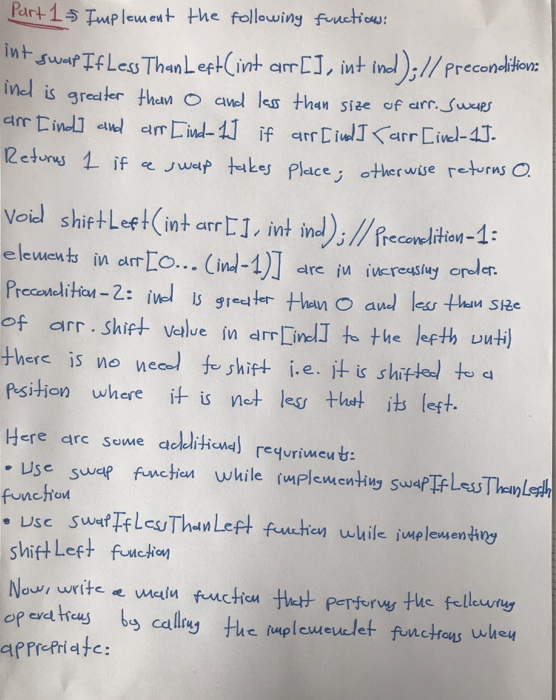 Part 1 → Implement the following function:
int swapIfLessThanLeft(int arr[], int ind); // precondition:
ind is greater than 0 and less than size of arr. Swaps
arr[ind] and arr[ind-1] if arr[ind] < arr[ind-1].
Returns 1 if a swap takes place; otherwise returns 0.
Void shiftLeft(int arr[], int ind); // Precondition-1:
elements in arr[0... (ind-1)] are in increasing order.
Precondition-2: ind is greater than 0 and less than size
of arr. shift value in arr[ind] to the lefth until
there is no need to shift i.e. it is shifted to a
Position where it is not less that its left.
Here are some additional requriment:
• Use swap function while implementing swapIfLessThanLefth
function
• Use swapIfLessThanLeft function while implementing
shiftLeft function
Now, write a main function that performs the following
operations by calling the implemendet functions when
appropriate: